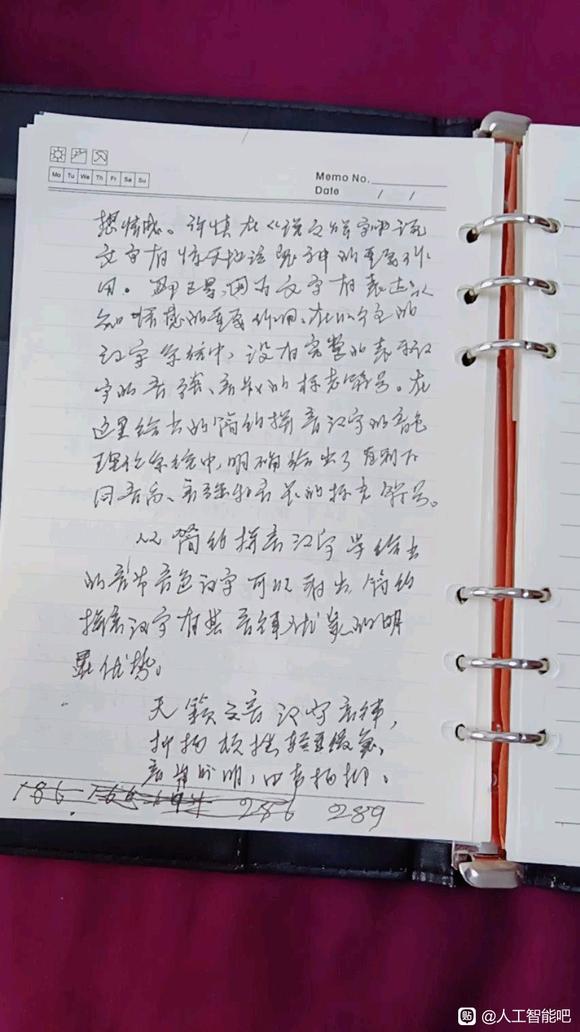 Mo Tu We Th Fr Sa Su
Memo No.
Date / /
想情感。许慎在《说文解字》中说
文字有惊天地泣鬼神的重要作
用。 文字有表达
情感的重要作用,在以今的
汉字系统中,没有完整的表示汉
字的音强、音长的标志符号。在
这里给出的简约拼音汉字的音色
理论系统中,明确给出了有利于
同音高、音强和音长的标志符号。
从简约拼音汉字学给出
的音节音色汉字可以看出,简约
拼音汉字有其音律优美的明
显优势。
天籁之音汉字音律,
抑扬顿挫轻重缓急,
音节分明,
286 289
@人工智能吧